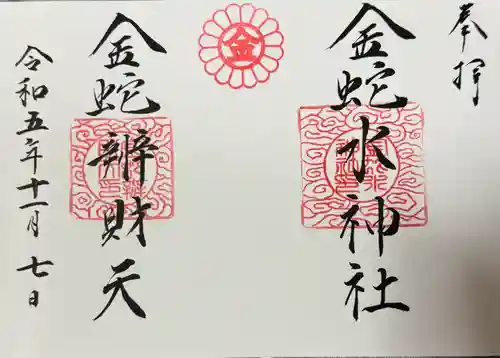 奉拝
金蛇水神社
金
金蛇辨財天
令和五年十一月七日